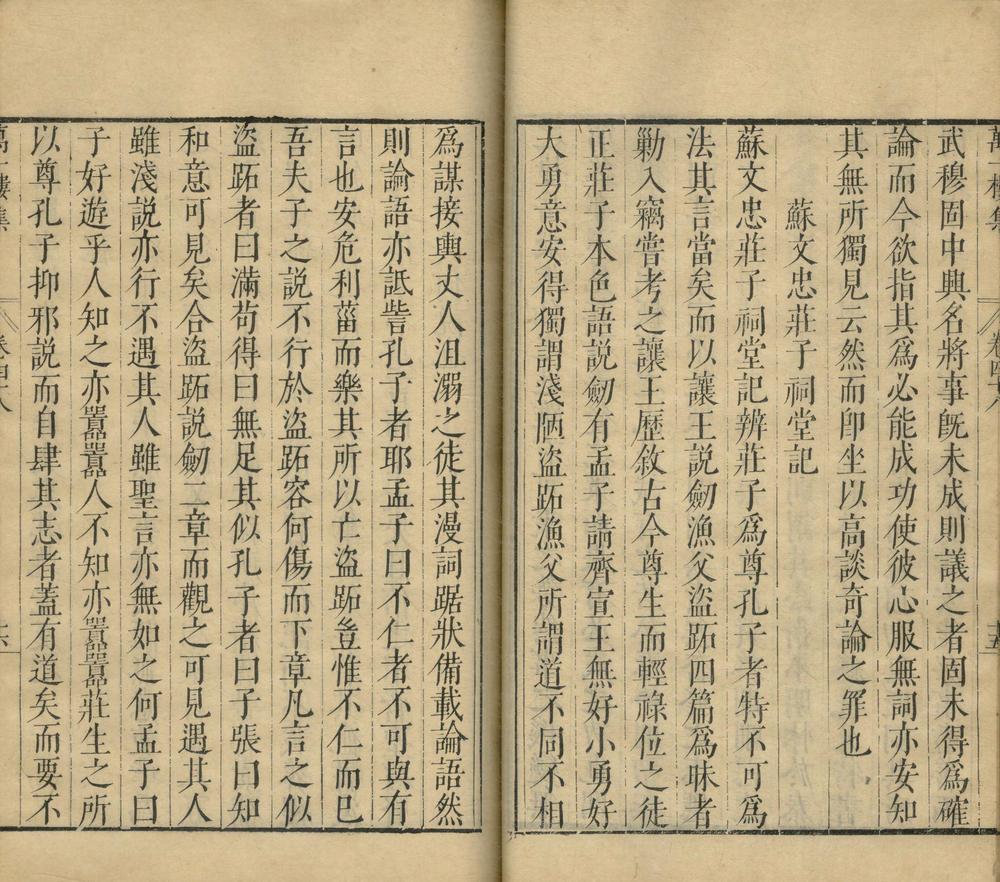 武穆固中興名將事旣未成則議之者固未得爲確
論而今欲指其爲必能成功使彼心服無詞亦安知
其無所獨見云然而卽坐以高談奇論之罪也
蘇文忠莊子祠堂記
蘇文忠莊子祠堂記辨莊子爲尊孔子者特不可爲
法其言當矣而以讓王説劒漁父盜跖四篇爲昧者
勦入竊嘗考之讓王歷敘古今尊生而輕祿位之徒
正莊子本色語説劒有孟子請齊宣王無好小勇好
大勇意安得獨謂淺陋盜跖漁父所謂道不同不相
爲謀接輿丈人沮溺之徒其漫詞踞狀備載論語然
則論語亦詆訾孔子者耶孟子曰不仁者不可與有
言也安危利菑而樂其所以亡盜跖豈惟不仁而已
吾夫子之説不行於盜跖容何傷而下章凡言之似
盜跖者曰滿苟得曰無足其似孔子者曰子張曰知
和意可見矣合盜跖説劒二章而觀之可見遇其人
雖淺説亦行不遇其人雖聖言亦無如之何孟子曰
子好遊乎人知之亦囂囂人不知亦囂囂莊生之所
以尊孔子抑邪説而自肆其志者蓋有道矣而要不